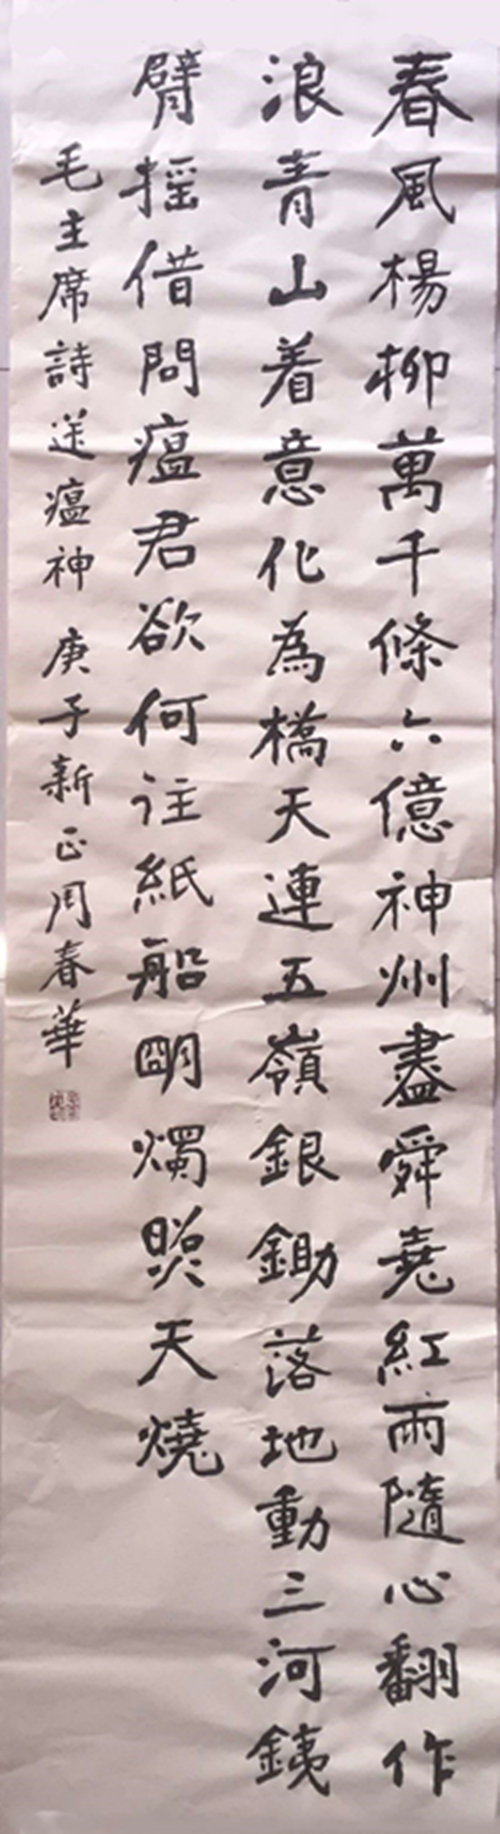 春風楊柳萬千條六億神州盡舜堯紅雨隨心翻作
浪青山着意化為橋天連五嶺銀鋤落地動三河鐵
臂摇借問瘟君欲何往紙船明燭照天燒
毛主席詩送瘟神 庚子新正周春華